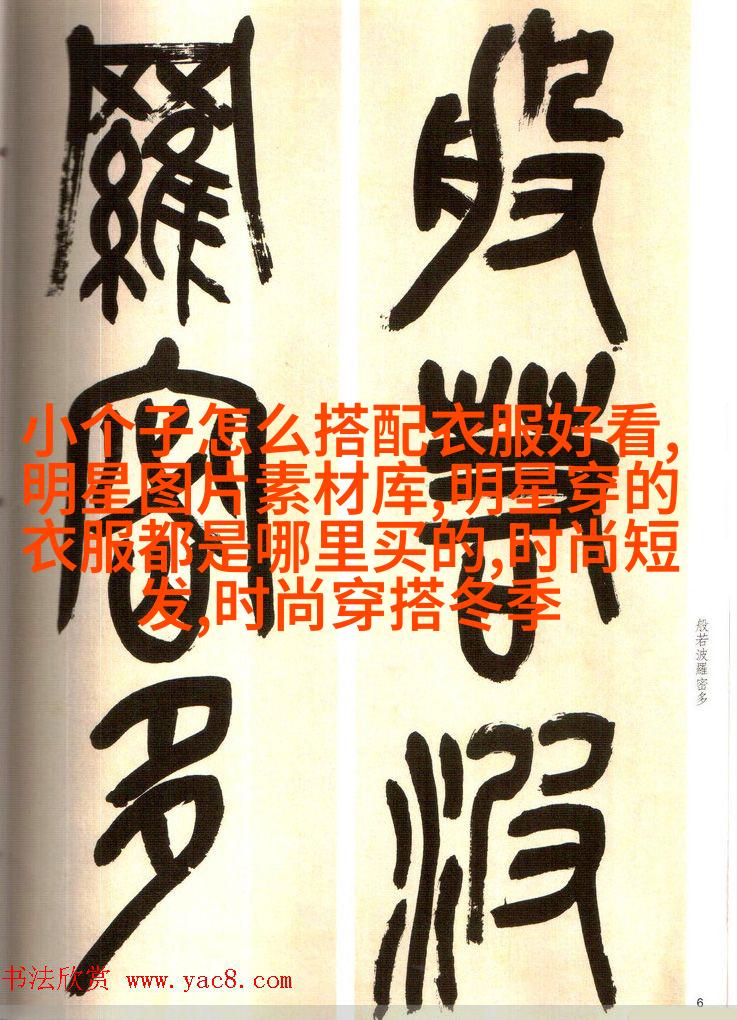 般若波
羅密多
小个子怎么搭配衣服好看,
明星图片素材库,明星穿的
衣服都是哪里买的,时尚短
发,时尚穿搭冬季
般若波羅密多
书法欣赏 www.yac8.com
6